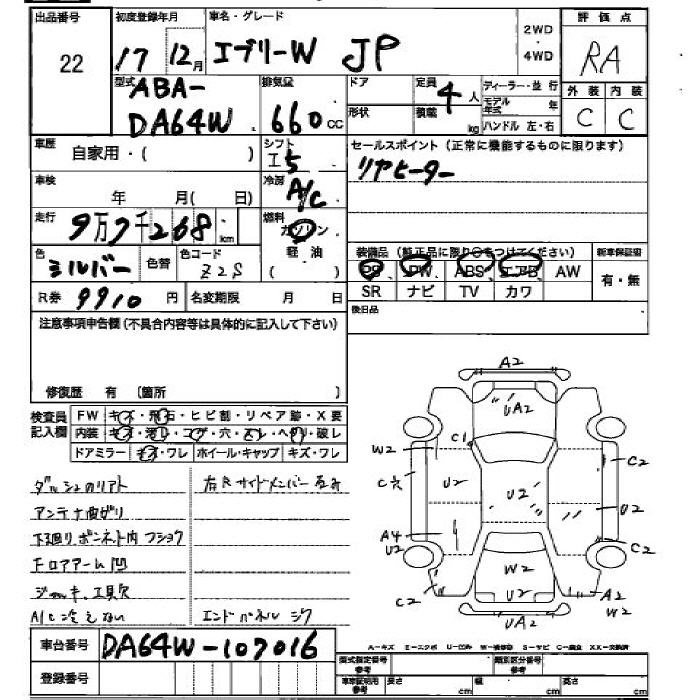 出品番号 初度登録年月 車名・グレード 2WD・4WD 評価点
22 17年12月 エブリーW JP RA
型式 排気量 ドア 定員 ディーラー・並行 外装 内装
ABA-DA64W 660cc 形状 4人 積載 kg モデル年式 年 ハンドル 左・右 C C
車歴 自家用・( ) シフト I5 セールスポイント(正常に機能するものに限ります)
リヤヒーター
車検 年 月( 日) 冷房 A/C
走行 9万7千268km 燃料 ガソリン 軽油 ( )
色 シルバー 色替 色コード Z2S
装備品(純正品に限り○をつけてください) 新車保証書
PS PW ABS エアB AW 有・無
SR ナビ TV カワ
R券 9910円 名変期限 月 日 後日品
注意事項申告欄(不具合内容等は具体的に記入して下さい)
修復歴 有 〔箇所 〕
検査員記入欄
FW キズ・飛石・ヒビ割・リペア跡・X要
内装 キズ・汚レ・コゲ・穴・スレ・ヘタリ・破レ
ドアミラー キズ・ワレ ホイール・キャップ キズ・ワレ
アンテナ曲がり
下廻り ボンネット内 フショク
フロアアーム凹
ジャッキ、工具欠
A/C冷えない
エンドパネル
A2
UA2
C1
W2
C2
C穴
U2
U2
U2
A4
U2
C2
W2
C2
A2
W2
UA2
A-キズ E-エクボ U-凹み W-補修跡 S-サビ C-腐食 XX-交換済
車台番号 DA64W-107016
登録番号
型式指定番号 参考 類別区分番号 参考
車庫証明用 参考 長さ cm 幅 cm 高さ cm